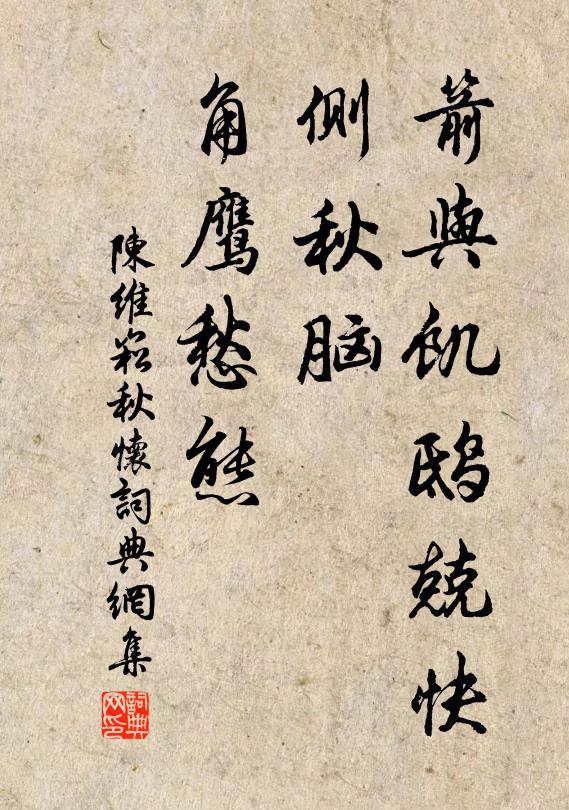 箭與飢鴟兢快
側秋脑
角鷹愁態
陳維崧秋懷詞典網集
詞典网印